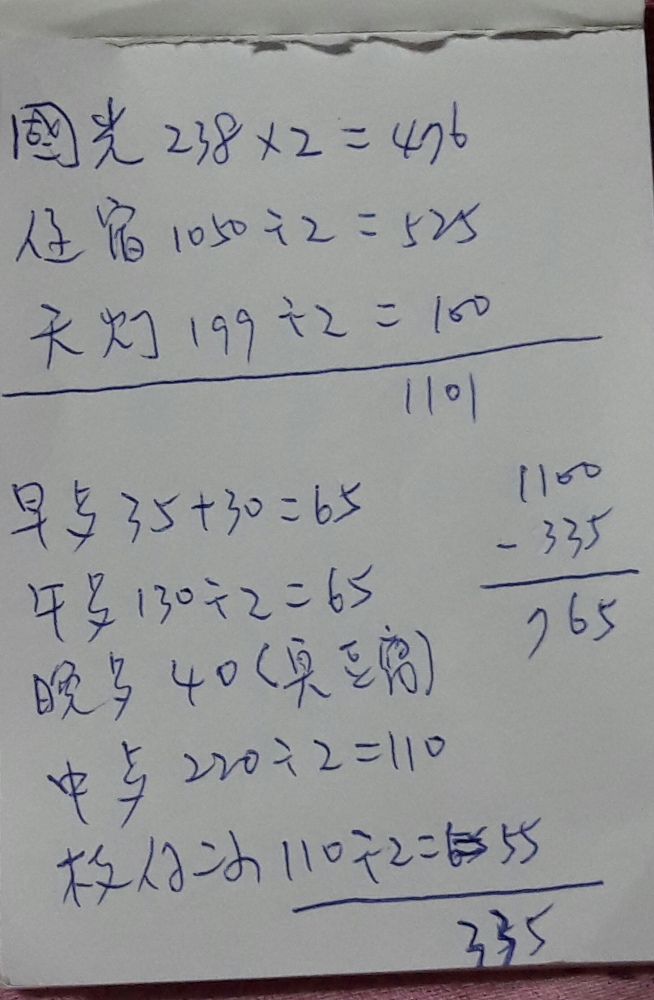 國光 238×2=476
住宿 1050÷2=525
天灯 199÷2=100
1101
早点 35+30=65
午点 130÷2=65
晚点 40(臭豆腐)
中点 220÷2=110
110÷2=55
335
1100
-335
765